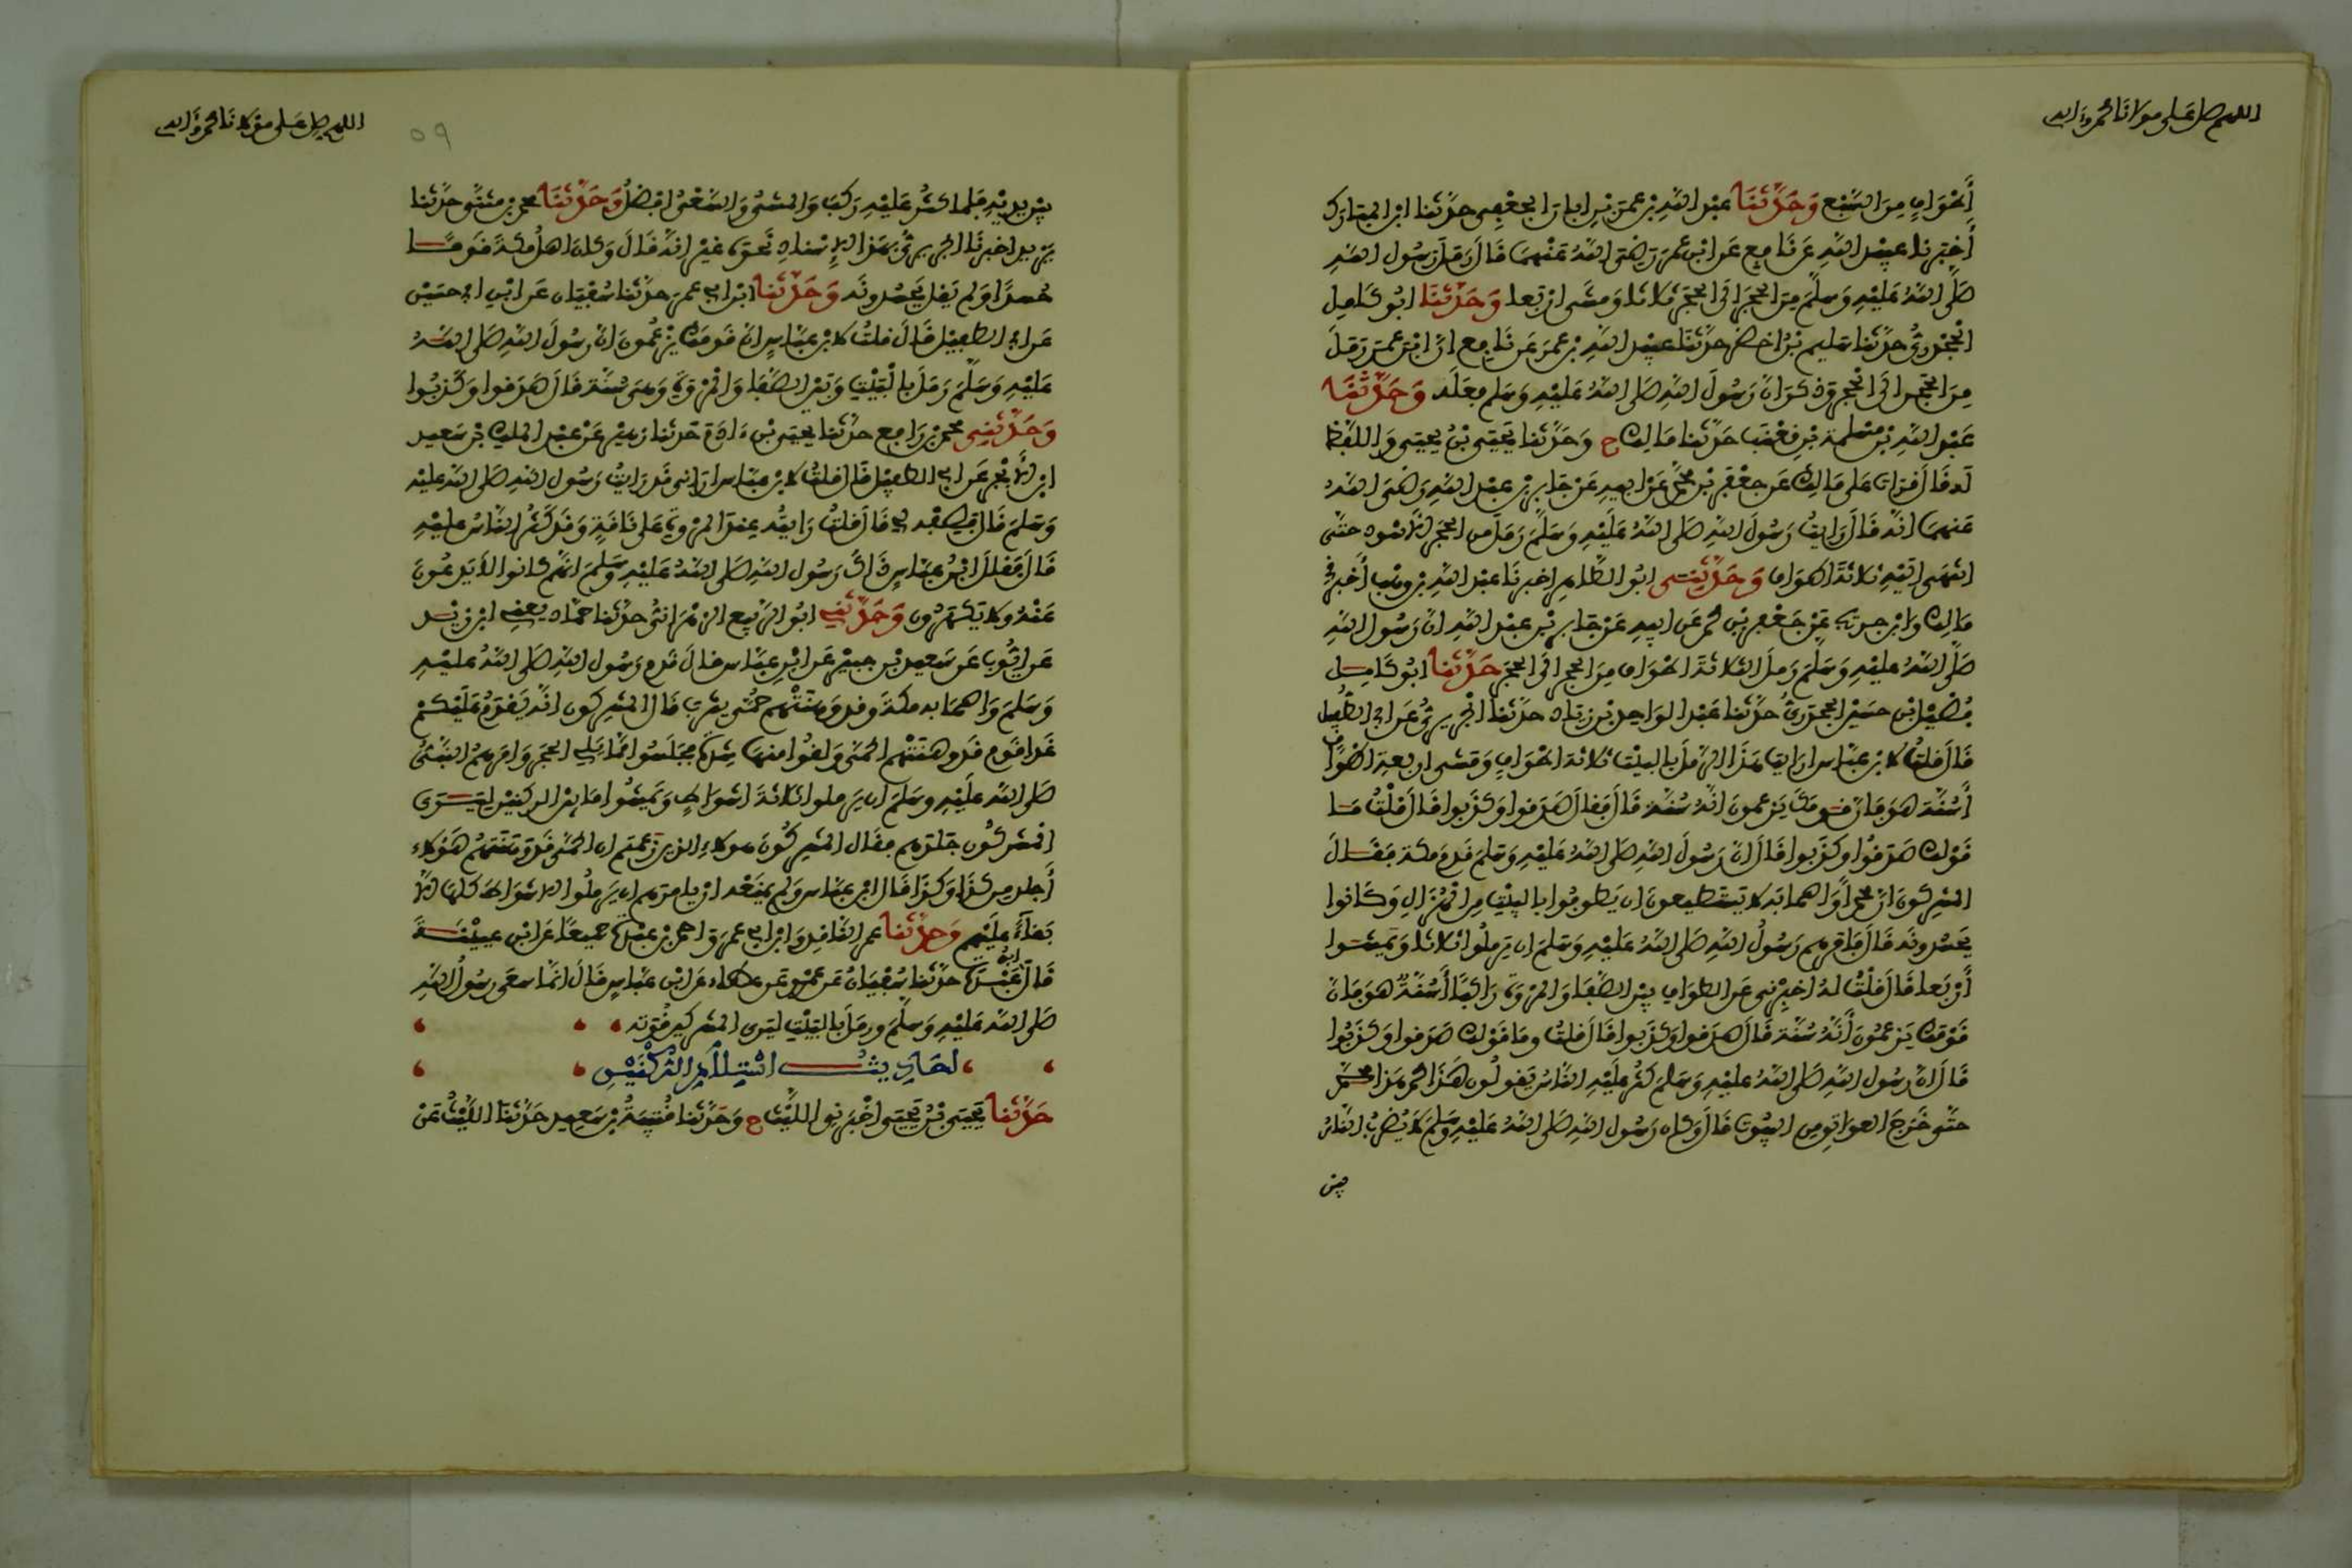 اللهم صل على مولانا محمد وآله
أطواف من السبع وحدثنا عبد الله بن عمر بن أبان الجعفي حدثنا ابن المبارك
أخبرنا عبيد الله عن نافع عن ابن عمر رضي الله عنهما قال رمل رسول الله
صلى الله عليه وسلم من الحجر الى الحجر ثلاثا ومشى أربعا وحدثنا أبو كامل
الجحدري حدثنا سليم بن أخضر حدثنا عبيد الله بن عمر عن نافع ان ابن عمر رمل
من الحجر الى الحجر وذكر ان رسول الله صلى الله عليه وسلم فعله وحدثنا
عبد الله بن مسلمة بن قعنب حدثنا مالك ح وحدثنا يحيى بن يحيى واللفظ
له قال قرأت على مالك عن جعفر بن محمد عن ابيه عن جابر بن عبد الله رضي الله
عنهما انه قال رأيت رسول الله صلى الله عليه وسلم رمل من الحجر الاسود حتى
انتهى اليه ثلاثة اطواف وحدثني ابو الطاهر اخبرنا عبد الله بن وهب أخبرني
مالك وابن جريج عن جعفر بن محمد عن ابيه عن جابر بن عبد الله ان رسول الله
صلى الله عليه وسلم رمل الثلاثة اطواف من الحجر الى الحجر حدثنا ابو كامل
فضيل بن حسين الجحدري حدثنا عبد الواحد بن زياد حدثنا الجريري عن ابي الطفيل
قال قلت لابن عباس ارايت هذا الرمل بالبيت ثلاثة اطواف ومشي اربعة اطواف
أسنة هو فان قومك يزعمون انه سنة قال فقال صدقوا وكذبوا قال قلت ما
قولك صدقوا وكذبوا قال ان رسول الله صلى الله عليه وسلم قدم مكة فقال
المشركون ان محمدا واصحابه لا يستطيعون ان يطوفوا بالبيت من الهزال وكانوا
يحسدونه قال فامرهم رسول الله صلى الله عليه وسلم ان يرملوا ثلاثا ويمشوا
أربعا قال قلت له اخبرني عن الطواف بين الصفا والمروة راكبا أسنة هو فان
قومك يزعمون أنه سنة قال صدقوا وكذبوا قال قلت وما قولك صدقوا وكذبوا
قال ان رسول الله صلى الله عليه وسلم كثر عليه الناس يقولون هذا محمد هذا محمد
حتى خرج العواتق من البيوت قال وكان رسول الله صلى الله عليه وسلم لا يضرب الناس
بين
اللهم صل على مولانا محمد وآله
٥٩
بين يديه فلما كثر عليه ركب والمشي والسعي افضل وحدثنا محمد بن مثنى حدثنا
يزيد اخبرنا الجريري بهذا الاسناد نحوه غير انه قال وكان اهل مكة قوما
حسدا ولم يقل يحسدونه وحدثنا ابن ابي عمر حدثنا سفيان عن ابن ابي حسين
عن ابي الطفيل قال قلت لابن عباس ان قومك يزعمون ان رسول الله صلى الله
عليه وسلم رمل بالبيت وبين الصفا والمروة وهي سنة قال صدقوا وكذبوا
وحدثني محمد بن رافع حدثنا يحيى بن ءادم حدثنا زهير عن عبد الملك بن سعيد
ابن الابجر عن ابي الطفيل قال قلت لابن عباس اراني قد رايت رسول الله صلى الله عليه
وسلم قال فصفه لي قال قلت رايته عند المروة على ناقة وقد كثر الناس عليه
قال فقال ابن عباس ذاك رسول الله صلى الله عليه وسلم انهم كانوا لا يدعون
عنه ولا يكهرون وحدثني ابو الربيع الزهراني حدثنا حماد يعني ابن زيد
عن ايوب عن سعيد بن جبير عن ابن عباس قال قدم رسول الله صلى الله عليه
وسلم واصحابه مكة وقد وهنتهم حمى يثرب قال المشركون انه يقدم عليكم
غدا قوم قد وهنتهم الحمى ولقوا منها شدة فجلسوا مما يلي الحجر وامرهم النبي
صلى الله عليه وسلم ان يرملوا ثلاثة اشواط ويمشوا ما بين الركنين ليرى
المشركون جلدهم فقال المشركون هؤلاء الذين زعمتم ان الحمى قد وهنتهم هؤلاء
أجلد من كذا وكذا قال ابن عباس ولم يمنعه ان يامرهم ان يرملوا الاشواط كلها الا
بقاء عليهم وحدثنا عمرو الناقد وابن ابي عمر واحمد بن عبدة جميعا عن ابن عيينة
قال ابن عبدة حدثنا سفيان عن عمرو عن عطاء عن ابن عباس قال انما سعى رسول الله
صلى الله عليه وسلم ورمل بالبيت ليري المشركين قوته
احاديث استلام الركنين
حدثنا يحيى بن يحيى اخبرنا الليث ح وحدثنا قتيبة بن سعيد حدثنا الليث عن